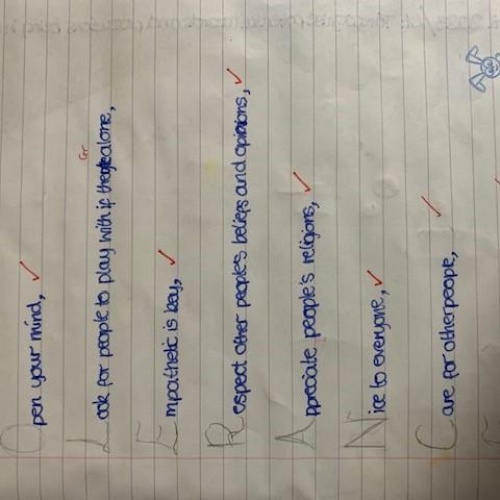 Open your mind,
Look for people to play with if they're alone,
Gr
Empathetic is key,
Respect other people's beliefs and opinions,
Appreciate people's religions,
Nice to everyone,
Care for other people,